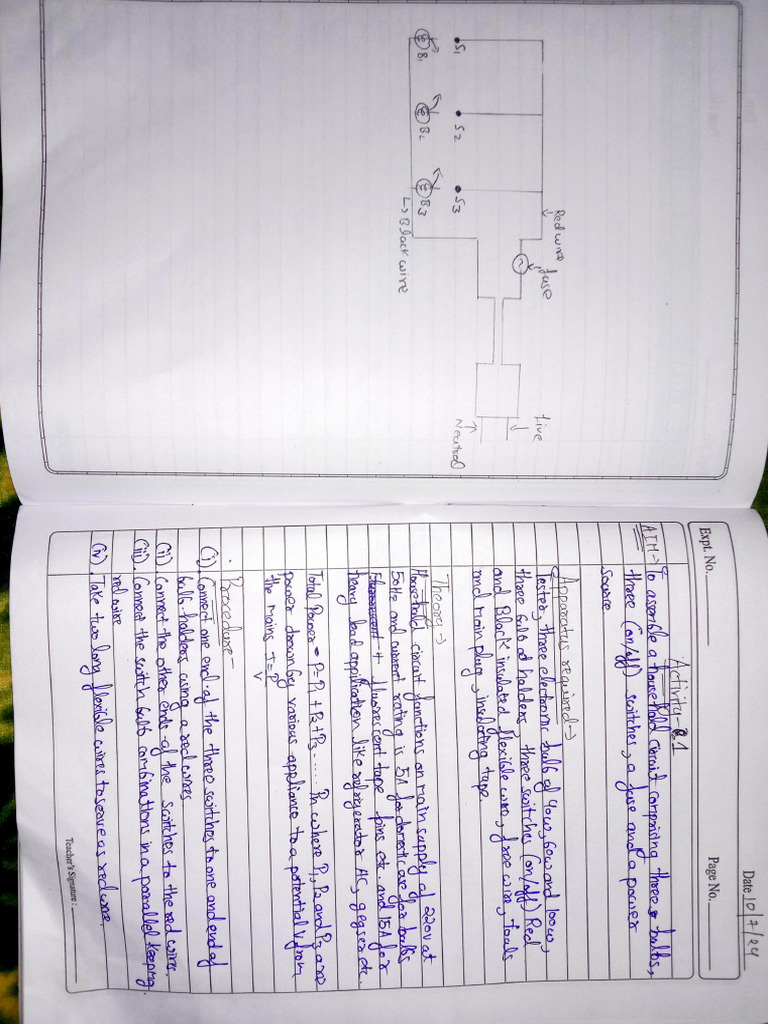 S1
S2
S3
B1
B2
B3
Red wire
fuse
Live
Neutral
↳ Black wire
Date 10/7/24
Expt. No.
Page No.
Activity-1
AIM →
To assemble a household circuit comprising three bulbs,
three (on/off) switches, a fuse and a power
source
Apparatus required →
Tester, three electronic bulb of 40w, 60w and 100w,
three bulb of holders, three switches (on/off) Red
and Black insulated flexible wire, fuse wire,
and main plug, insulating tape
Theory →
Household circuit functions on main supply of 220v at
50Hz and current rating is 5A for domestic are for bulbs
fluorescent tape pins etc. and 15A for
heavy load application like refrigerator AC, geyser etc.
Total Power = P = P1 + P2 + P3 ..... Pn where P1, P2 and P3 are
power drawn by various appliance to a potential V from
the mains I = P/V
Procedure -
(i) Connect one end of the three switches to one end of
bulb holders using a red wires
(ii) Connect the other ends of the switches to the red wires.
(iii) Connect the switch bulb combinations in a parallel keeping
red wire
(iv) Take two long flexible wires to serve as red wire,
Teacher's Signature :